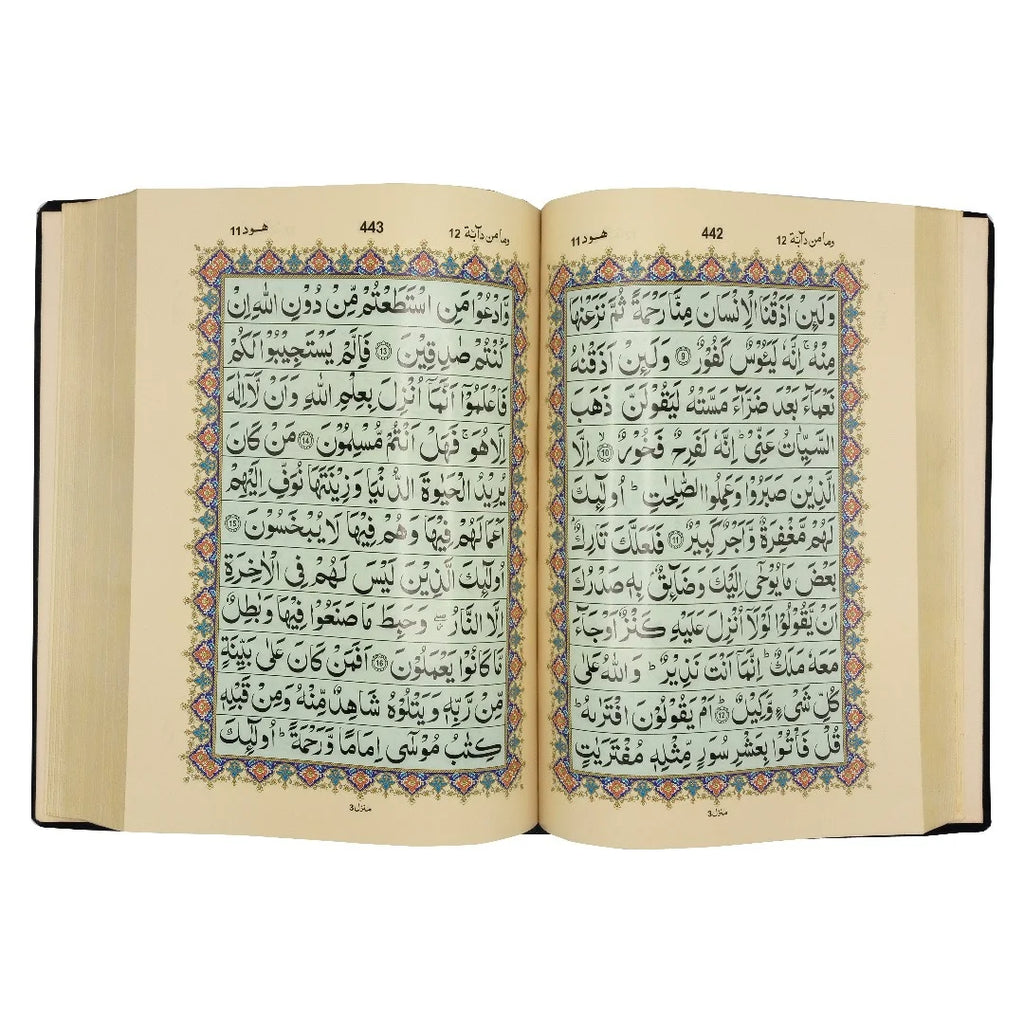 وما من دآبّة 12
442
هود 11
وَلَىِٕنْ اَذَقْنَا الْاِنْسَانَ مِنَّا رَحْمَةً ثُمَّ نَزَعْنٰهَا
مِنْهُ ۚ اِنَّهٗ لَيَـُٔوْسٌ كَفُوْرٌ 9 وَلَىِٕنْ اَذَقْنٰهُ
نَعْمَآءَ بَعْدَ ضَرَّآءَ مَسَّتْهُ لَيَقُوْلَنَّ ذَهَبَ
السَّيِّاٰتُ عَنِّيْ ؕ اِنَّهٗ لَفَرِحٌ فَخُوْرٌ 10 اِلَّا
الَّذِيْنَ صَبَرُوْا وَعَمِلُوا الصّٰلِحٰتِ ؕ اُولٰٓىِٕكَ
لَهُمْ مَّغْفِرَةٌ وَّاَجْرٌ كَبِيْرٌ 11 فَلَعَلَّكَ تَارِكٌۢ
بَعْضَ مَا يُوْحٰۤى اِلَيْكَ وَضَآىِٕقٌۢ بِهٖ صَدْرُكَ
اَنْ يَّقُوْلُوْا لَوْلَاۤ اُنْزِلَ عَلَيْهِ كَنْزٌ اَوْ جَآءَ
مَعَهٗ مَلَكٌ ؕ اِنَّمَاۤ اَنْتَ نَذِيْرٌ ؕ وَاللّٰهُ عَلٰى
كُلِّ شَيْءٍ وَّكِيْلٌ ؕ 12 اَمْ يَقُوْلُوْنَ افْتَرٰىهُ ؕ
قُلْ فَاْتُوْا بِعَشْرِ سُوَرٍ مِّثْلِهٖ مُفْتَرَيٰتٍ
منزل 3
وما من دآبّة 12
443
هود 11
وَّادْعُوْا مَنِ اسْتَطَعْتُمْ مِّنْ دُوْنِ اللّٰهِ اِنْ
كُنْتُمْ صٰدِقِيْنَ 13 فَاِلَّمْ يَسْتَجِيْبُوْا لَكُمْ
فَاعْلَمُوْۤا اَنَّمَاۤ اُنْزِلَ بِعِلْمِ اللّٰهِ وَاَنْ لَّاۤ اِلٰهَ
اِلَّا هُوَ ۚ فَهَلْ اَنْتُمْ مُّسْلِمُوْنَ 14 مَنْ كَانَ
يُرِيْدُ الْحَيٰوةَ الدُّنْيَا وَزِيْنَتَهَا نُوَفِّ اِلَيْهِمْ
اَعْمَالَهُمْ فِيْهَا وَهُمْ فِيْهَا لَا يُبْخَسُوْنَ 15
اُولٰٓىِٕكَ الَّذِيْنَ لَيْسَ لَهُمْ فِي الْاٰخِرَةِ
اِلَّا النَّارُ وَحَبِطَ مَا صَنَعُوْا فِيْهَا وَبٰطِلٌ
مَّا كَانُوْا يَعْمَلُوْنَ 16 اَفَمَنْ كَانَ عَلٰى بَيِّنَةٍ
مِّنْ رَّبِّهٖ وَيَتْلُوْهُ شَاهِدٌ مِّنْهُ وَمِنْ قَبْلِهٖ
كِتٰبُ مُوْسٰۤى اِمَامًا وَّرَحْمَةً ؕ اُولٰٓىِٕكَ
منزل 3